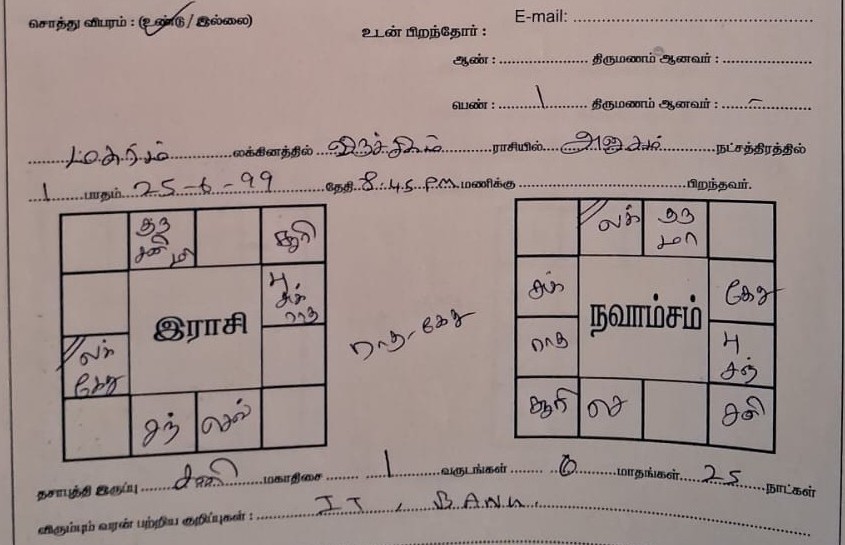 E-mail:
சொத்து விபரம் : (உண்டு / இல்லை)
உடன் பிறந்தோர் :
ஆண் : திருமணம் ஆனவர் :
பெண் : 1 திருமணம் ஆனவர் : -
மகரம் லக்கினத்தில் விருச்சிகம் ராசியில் அனுசம் நட்சத்திரத்தில்
1 பாதம் 25-6-99 தேதி 8.45 P.M மணிக்கு பிறந்தவர்.
குரு
சனி
சூரி
லக் குரு
மா
பு
சுக்
ராகு
சுக்
கேது
இராசி
நவாம்சம்
ராகு-கேது
லக்
கேது
ராகு
பு
சந்
சந்
செவ்
சூரி
செ
சனி
தசாபுத்தி இருப்பு சனி மகாதிசை 1 வருடங்கள் 0 மாதங்கள் 25 நாட்கள்
விரும்பும் வரன் பற்றிய குறிப்புகள் : IT, BANK.